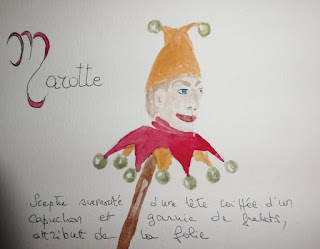 Marotte
Sceptre surmonté d'une tête coiffée d'un
capuchon et garnie de grelots,
attribut de la folie